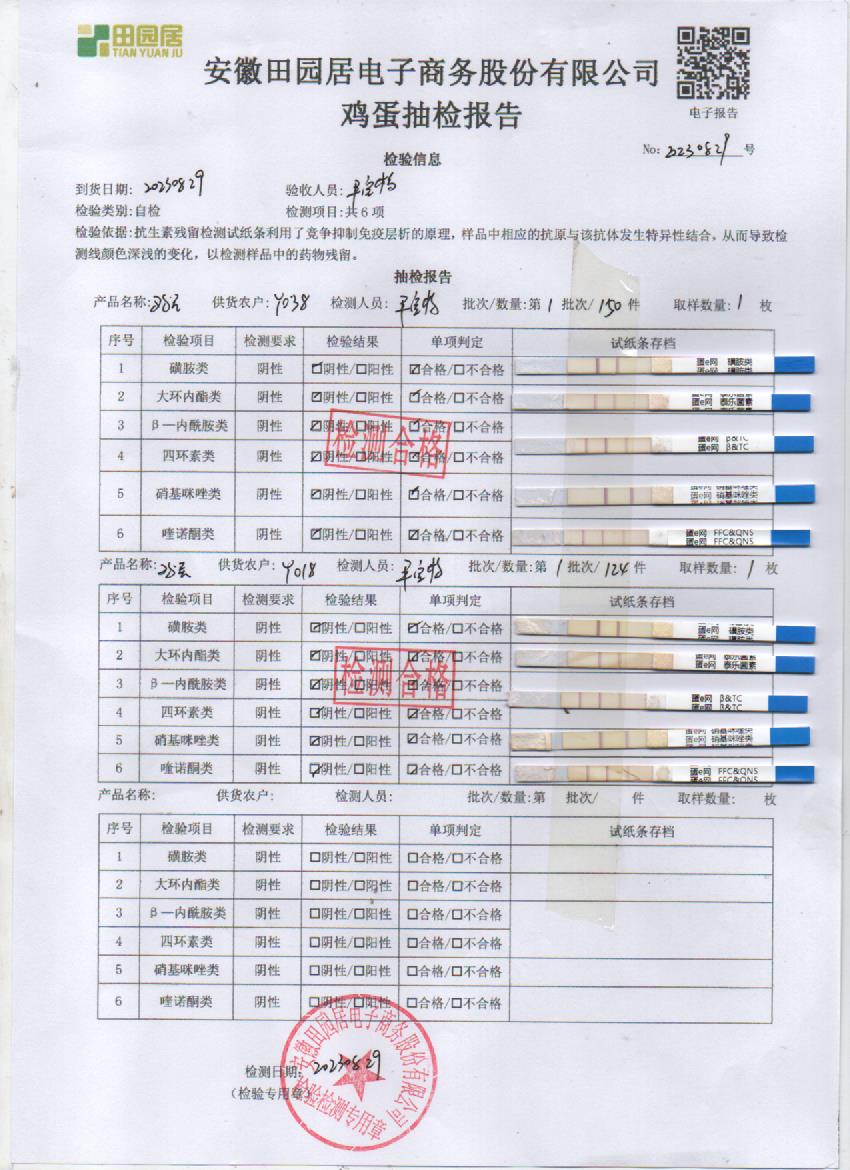 田园居
TIAN YUAN JU
安徽田园居电子商务股份有限公司
鸡蛋抽检报告
电子报告
No: 20230829 号
检验信息
到货日期: 20230829 验收人员:
检验类别:自检 检测项目:共6项
检验依据:抗生素残留检测试纸条利用了竞争抑制免疫层析的原理，样品中相应的抗原与该抗体发生特异性结合，从而导致检
测线颜色深浅的变化，以检测样品中的药物残留。
抽检报告
产品名称: 供货农户: Y038 检测人员: 批次/数量:第 1 批次/ 150 件 取样数量: 1 枚
序号 检验项目 检测要求 检验结果 单项判定 试纸条存档
1 磺胺类 阴性 ☑阴性/☐阳性 ☑合格/☐不合格 蛋e网 磺胺类
2 大环内酯类 阴性 ☑阴性/☐阳性 ☑合格/☐不合格 蛋e网 泰乐菌素
3 β－内酰胺类 阴性 ☑阴性/☐阳性 ☑合格/☐不合格
4 四环素类 阴性 ☑阴性/☐阳性 ☑合格/☐不合格 蛋e网 β&TC
检测合格
5 硝基咪唑类 阴性 ☑阴性/☐阳性 ☑合格/☐不合格 蛋e网 硝基咪唑类
6 喹诺酮类 阴性 ☑阴性/☐阳性 ☑合格/☐不合格 蛋e网 FFC&QNS
产品名称: 供货农户: Y018 检测人员: 批次/数量:第 1 批次/ 124 件 取样数量: 1 枚
序号 检验项目 检测要求 检验结果 单项判定 试纸条存档
1 磺胺类 阴性 ☑阴性/☐阳性 ☑合格/☐不合格 蛋e网 磺胺类
2 大环内酯类 阴性 ☑阴性/☐阳性 ☑合格/☐不合格 蛋e网 泰乐菌素
3 β－内酰胺类 阴性 ☑阴性/☐阳性 ☑合格/☐不合格 蛋e网 β&TC
检测合格
4 四环素类 阴性 ☑阴性/☐阳性 ☑合格/☐不合格
5 硝基咪唑类 阴性 ☑阴性/☐阳性 ☑合格/☐不合格 蛋e网 硝基咪唑类
6 喹诺酮类 阴性 ☑阴性/☐阳性 ☑合格/☐不合格 蛋e网 FFC&QNS
产品名称: 供货农户: 检测人员: 批次/数量:第 批次/ 件 取样数量: 枚
序号 检验项目 检测要求 检验结果 单项判定 试纸条存档
1 磺胺类 阴性 ☐阴性/☐阳性 ☐合格/☐不合格
2 大环内酯类 阴性 ☐阴性/☐阳性 ☐合格/☐不合格
3 β－内酰胺类 阴性 ☐阴性/☐阳性 ☐合格/☐不合格
4 四环素类 阴性 ☐阴性/☐阳性 ☐合格/☐不合格
5 硝基咪唑类 阴性 ☐阴性/☐阳性 ☐合格/☐不合格
6 喹诺酮类 阴性 ☐阴性/☐阳性 ☐合格/☐不合格
安徽田园居电子商务股份有限公司
检测日期: 20230829
（检验专用章）
检验检测专用章